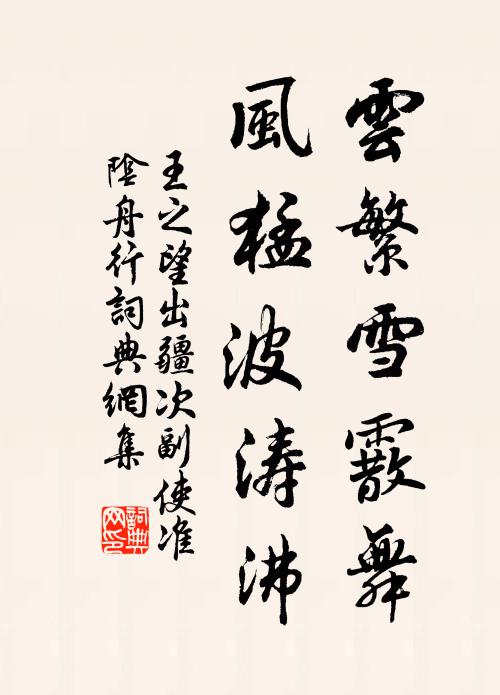 雲繁雪霰舞
風猛波濤沸
王之望出疆次副使淮
陰舟行詞典網集
詞典
网印